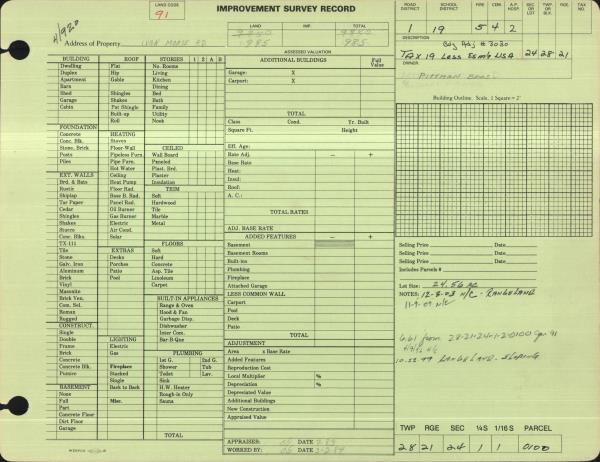 LAND CODE
91
IMPROVEMENT SURVEY RECORD
4/920
Address of Property
LYNN MOORE RD
LAND TOTAL
985 985
ASSESSED VALUATION
ROAD DISTRICT SCHOOL DISTRICT A.P. HOSP SEC OR LOT TWP OR BLK RGE TAX NO
1 19 5 4 2
Bdy Adj # 3030
TAX 19 Less Esmt USA 24 28 21
OWNER
PITTMAN BROS.
BUILDING
Dwelling
Duplex
Apartment
Barn
Shed
Garage
Cabin
FOUNDATION
Concrete
Conc. Blk.
Stone, Brick
Posts
Piles
EXT. WALLS
Brd. & Bats
Rustic
Shiplap
Tar Paper
Cedar
Shingles
Shakes
Stucco
Conc. Blks
TX-111
Tile
Stone
Galv. Iron
Aluminum
Brick
Vinyl
Masonite
Brick Ven.
Com. Sel.
Roman
Rugged
CONSTRUCT.
Single
Double
Frame
Brick
Concrete
Concrete Blk.
Pumice
BASEMENT
None
Full
Part
Concrete Floor
Dirt Floor
Garage
ROOF
Flat
Hip
Gable
Shingles
Shakes
Pat Shingle
Built-up
Roll
HEATING
Stoves
Floor-Wall
Pipeless Furn.
Pipe Furn.
Hot Water
Ceiling
Heat Pump
Floor Rad.
Base B. Rad.
Panel Rad.
Oil Burner
Gas Burner
Electric
Air Cond.
Solar
EXTRAS
Decks
Porches
Patio
Pool
LIGHTING
Electric
Gas
Fireplace
Stacked
Single
Back to Back
Misc.
STORIES 1 2 A B
No. Rooms
Living
Kitchen
Dining
Bed
Bath
Family
Utility
Nook
CEILED
Wall Board
Paneled
Plast. Brd.
Plaster
Insulation
TRIM
Soft
Hardwood
Tile
Marble
Metal
FLOORS
Hard
Concrete
Asp. Tile
Linoleum
Carpet
BUILT-IN APPLIANCES
Range & Oven
Hood & Fan
Garbage Disp.
Dishwasher
Inter Com.
Bar-B-Que
PLUMBING
1st G. 2nd G.
Shower Tub
Toilet Lav.
Sink
H.W. Heater
Rough-in Only
Sauna
TOTAL
ADDITIONAL BUILDINGS Full Value
Garage: X
Carport: X
TOTAL
Class Cond. Yr. Built
Square Ft. Height
Eff. Age:
Rate Adj. − +
Base Rate
Heat:
Insul:
Roof:
A. C.:
TOTAL RATES
ADJ. BASE RATE
ADDED FEATURES − +
Basement
Basement Rooms
Built-ins
Plumbing
Fireplace
Attached Garage
LESS COMMON WALL
Carport
Pool
Deck
Patio
TOTAL
ADJUSTMENT
Area x Base Rate
Added Features
Reproduction Cost
Local Multiplier %
Depreciation %
Depreciated Value
Additional Buildings
New Construction
Appraised Value
APPRAISED: DATE
WORKED BY: DATE
Building Outline. Scale, 1 Square = 2'
Selling Price Date
Selling Price Date
Selling Price Date
Includes Parcels #
Lot Size: 24.56 AC
NOTES: 12-8-03 N/C - RANGELAND
11-9-09 N/C
10-22-99 RANGELAND - SLOPING
TWP RGE SEC ¼S 1/16S PARCEL
28 21 24 1 1 0100